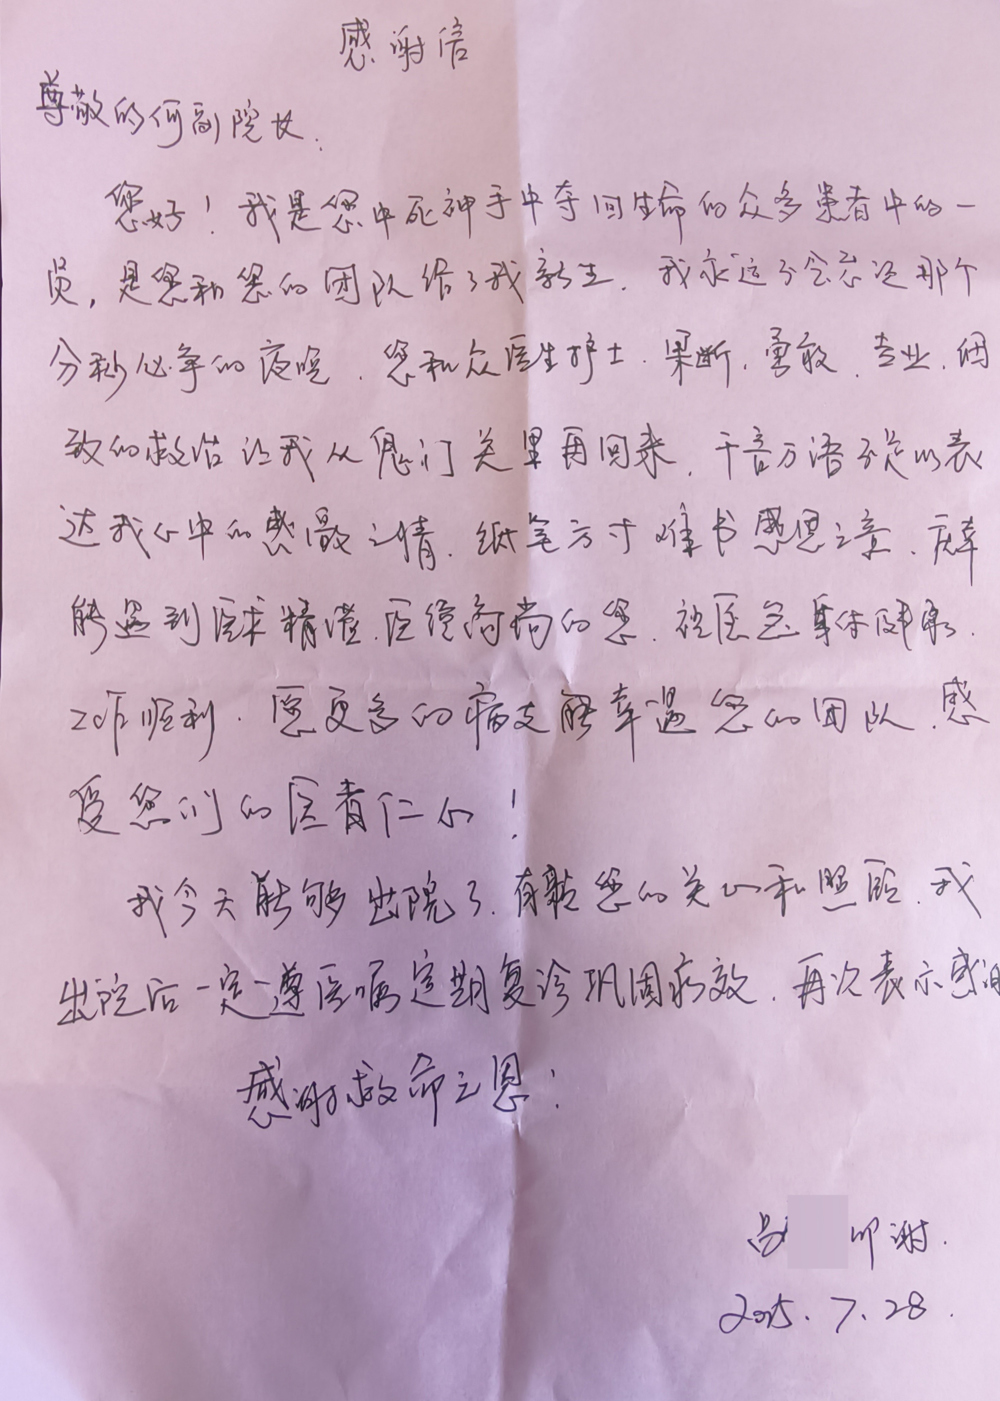 感谢信
尊敬的何副院长.
您好！我是您中死神手中夺回生命的众多患者中的一
员，是您和您的团队给了我新生. 我永远不会忘记那个
分秒必争的夜晚. 您和众医生护士. 果断. 勇敢. 专业. 细
致的救治让我从鬼门关里再回来. 千言万语不足以表
达我心中的感激之情. 纸笔方寸难书感恩之意. 庆幸
能遇到医术精湛. 医德高尚的您. 祝 身体健康.
工作顺利. 愿更多的病友能幸遇您的团队. 感
受您们的医者仁心！
我今天能够出院了. 有赖您的关心和照顾. 我
出院后一定遵医嘱定期复诊巩固疗效. 再次表示感谢
感谢救命之恩！
吕 叩谢.
2025. 7. 28.